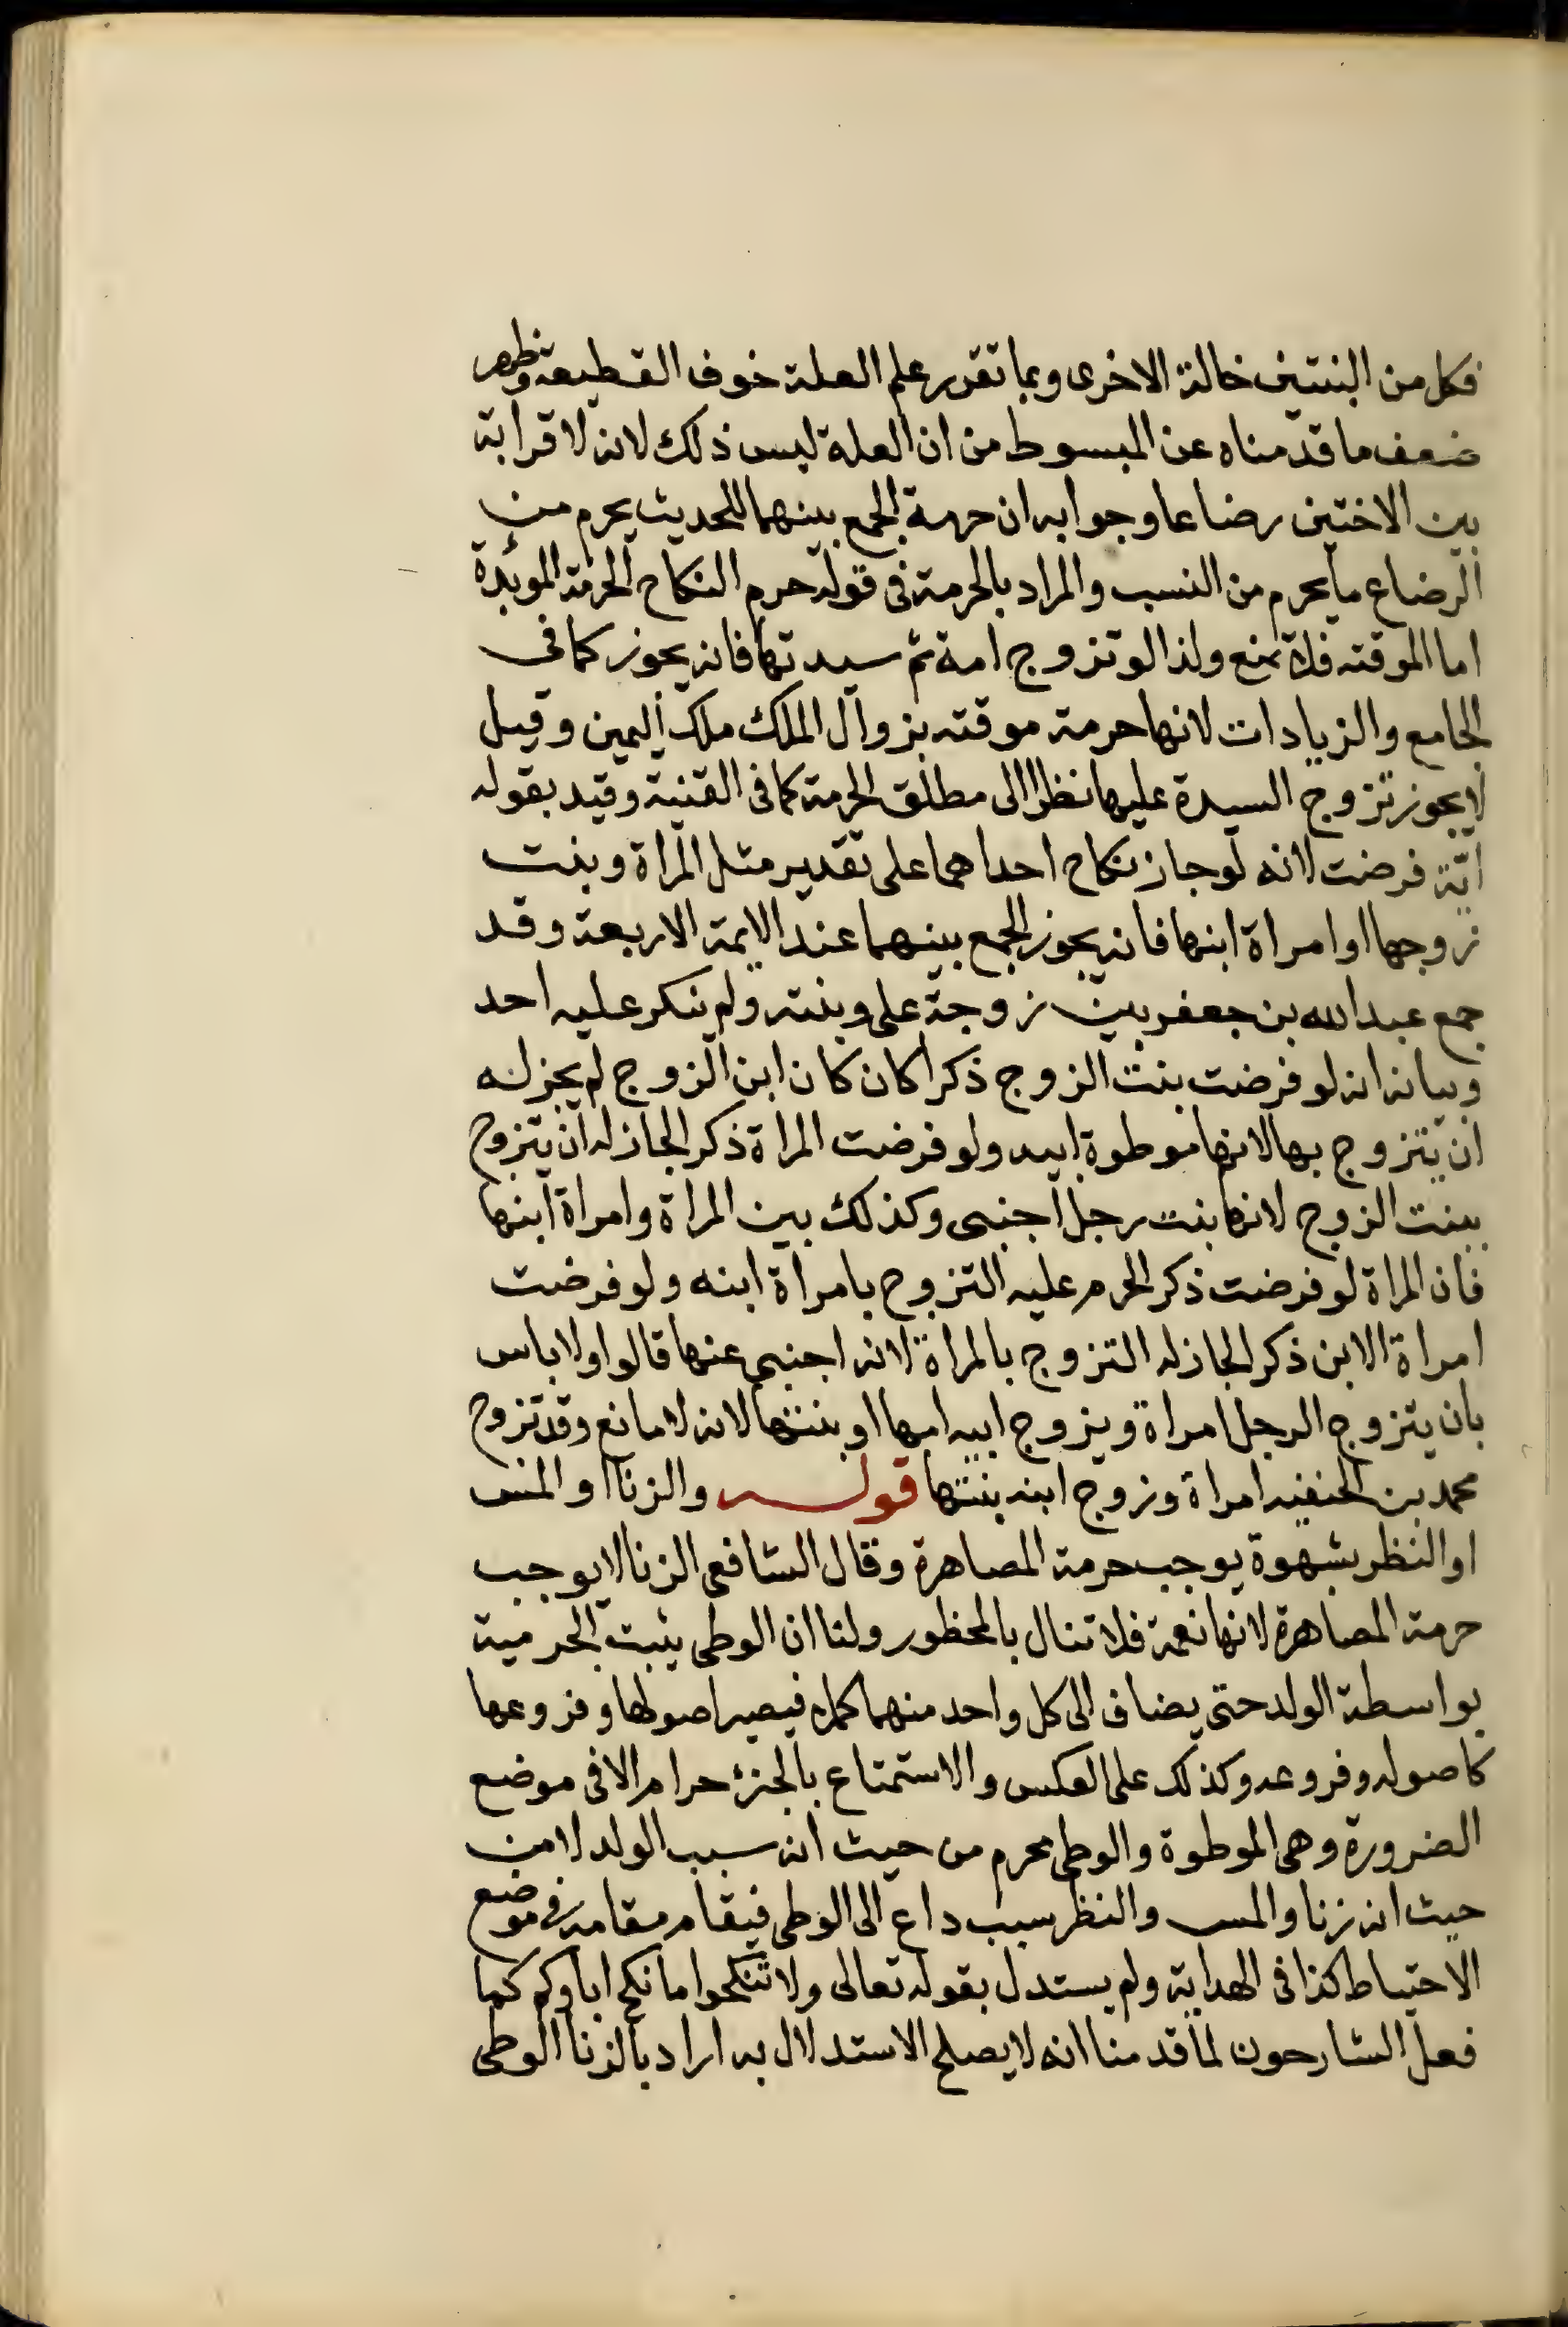 فكل من البنتين خالة الاخرى وبما تقرر علم العلة خوف القطيعة وظهر
ضعف ما قدمناه عن المبسوط من ان العلة ليس ذلك لانه لا قرابة
بين الاختين رضاعا وجوابه ان حرمة الجمع بينهما للحديث يحرم من
الرضاع ما يحرم من النسب والمراد بالحرمة فى قوله حرم النكاح الحرمة الموبدة
اما الموقته فلا تمنع ولذا لو تزوج امة ثم سيدتها فانه يجوز كما فى
الجامع والزيادات لانها حرمة موقته بزوال الملك ملك اليمين وقيل
لا يجوز تزوج السيدة عليها نظرا الى مطلق الحرمة كما فى القنية وقيد بقوله
اية فرضت لانه لو جاز نكاح احداهما على تقدير مثل المراة وبنت
زوجها او امراة ابنها فانه يجوز الجمع بينهما عند الايمة الاربعة وقد
جمع عبدالله بن جعفر بين زوجة على وبنته ولم ينكر عليه احد
وبيانه انه لو فرضت بنت الزوج ذكرا كان كان ابن الزوج لم يجز له
ان يتزوج بها لانها موطوة ابيه ولو فرضت المراة ذكر الجاز له ان يتزوج
ببنت الزوج لانها بنت رجل اجنبى وكذلك بين المراة وامراة ابنها
فان المراة لو فرضت ذكر الحرم عليه التزوج بامراة ابنه ولو فرضت
امراة الابن ذكر الجاز له التزوج بالمراة لانه اجنبى عنها قالوا ولا باس
بان يتزوج الرجل امراة ويزوج ابيه امها او بنتها لانه لا مانع وقد تزوج
محمد بن الحنفيه امراة وزوج ابنه بنتها قوله والزنا او المس
او النظر بشهوة يوجب حرمة المصاهرة وقال الشافعى الزنا لا يوجب
حرمة المصاهرة لانها نعمة فلا تنال بالمحظور ولنا ان الوطى يثبت الحرمية
بواسطة الولد حتى يضاف الى كل واحد منهما كملا فيصير اصولها وفروعها
كاصوله وفروعه وكذلك على العكس والاستمتاع بالجزء حرام الا فى موضع
الضرورة وهى الموطوة والوطى محرم من حيث انه سبب الولد لا من
حيث انه زنا والمس والنظر سبب داع الى الوطى فيقام مقامه فى موضع
الاحتياط كذا فى الهداية ولم يستدل بقوله تعالى ولا تنكحوا ما نكح اباوكم كما
فعل الشارحون لما قدمنا انه لا يصلح الاستدلال به اراد بالزنا الوطى